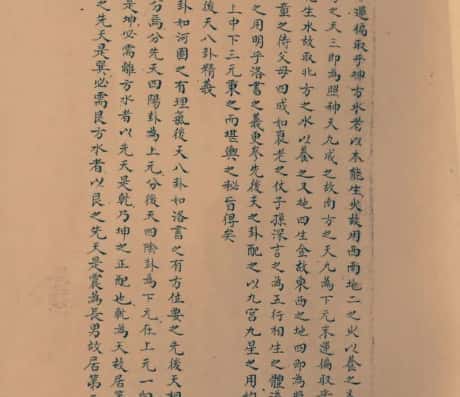 運偏取乎坤方水若以木能生火故用西南地二之火以養之
之天三即為照神天九成之故南方之天九為下元末運偏取
能生水故取北方之水以養之又地四生金故東西之地四即為
童之侍父母四成如衰老之仗子孫深言之為五行相生之體
之用明乎洛書之義更參先後天之卦配之以九宮九星之用
上中下三元乘之而堪輿之秘旨得矣
後天八卦精義
卦如河圖之有理氣後天八卦如洛書之有方位要之先後天相
分焉分先天四陽卦為上元分後天四陰卦為下元在上元一
是坤必需離方水者以先天是乾乃坤之正配也乾為天故居
之先天是巽必需艮方水者以艮之先天是震為長男故居第